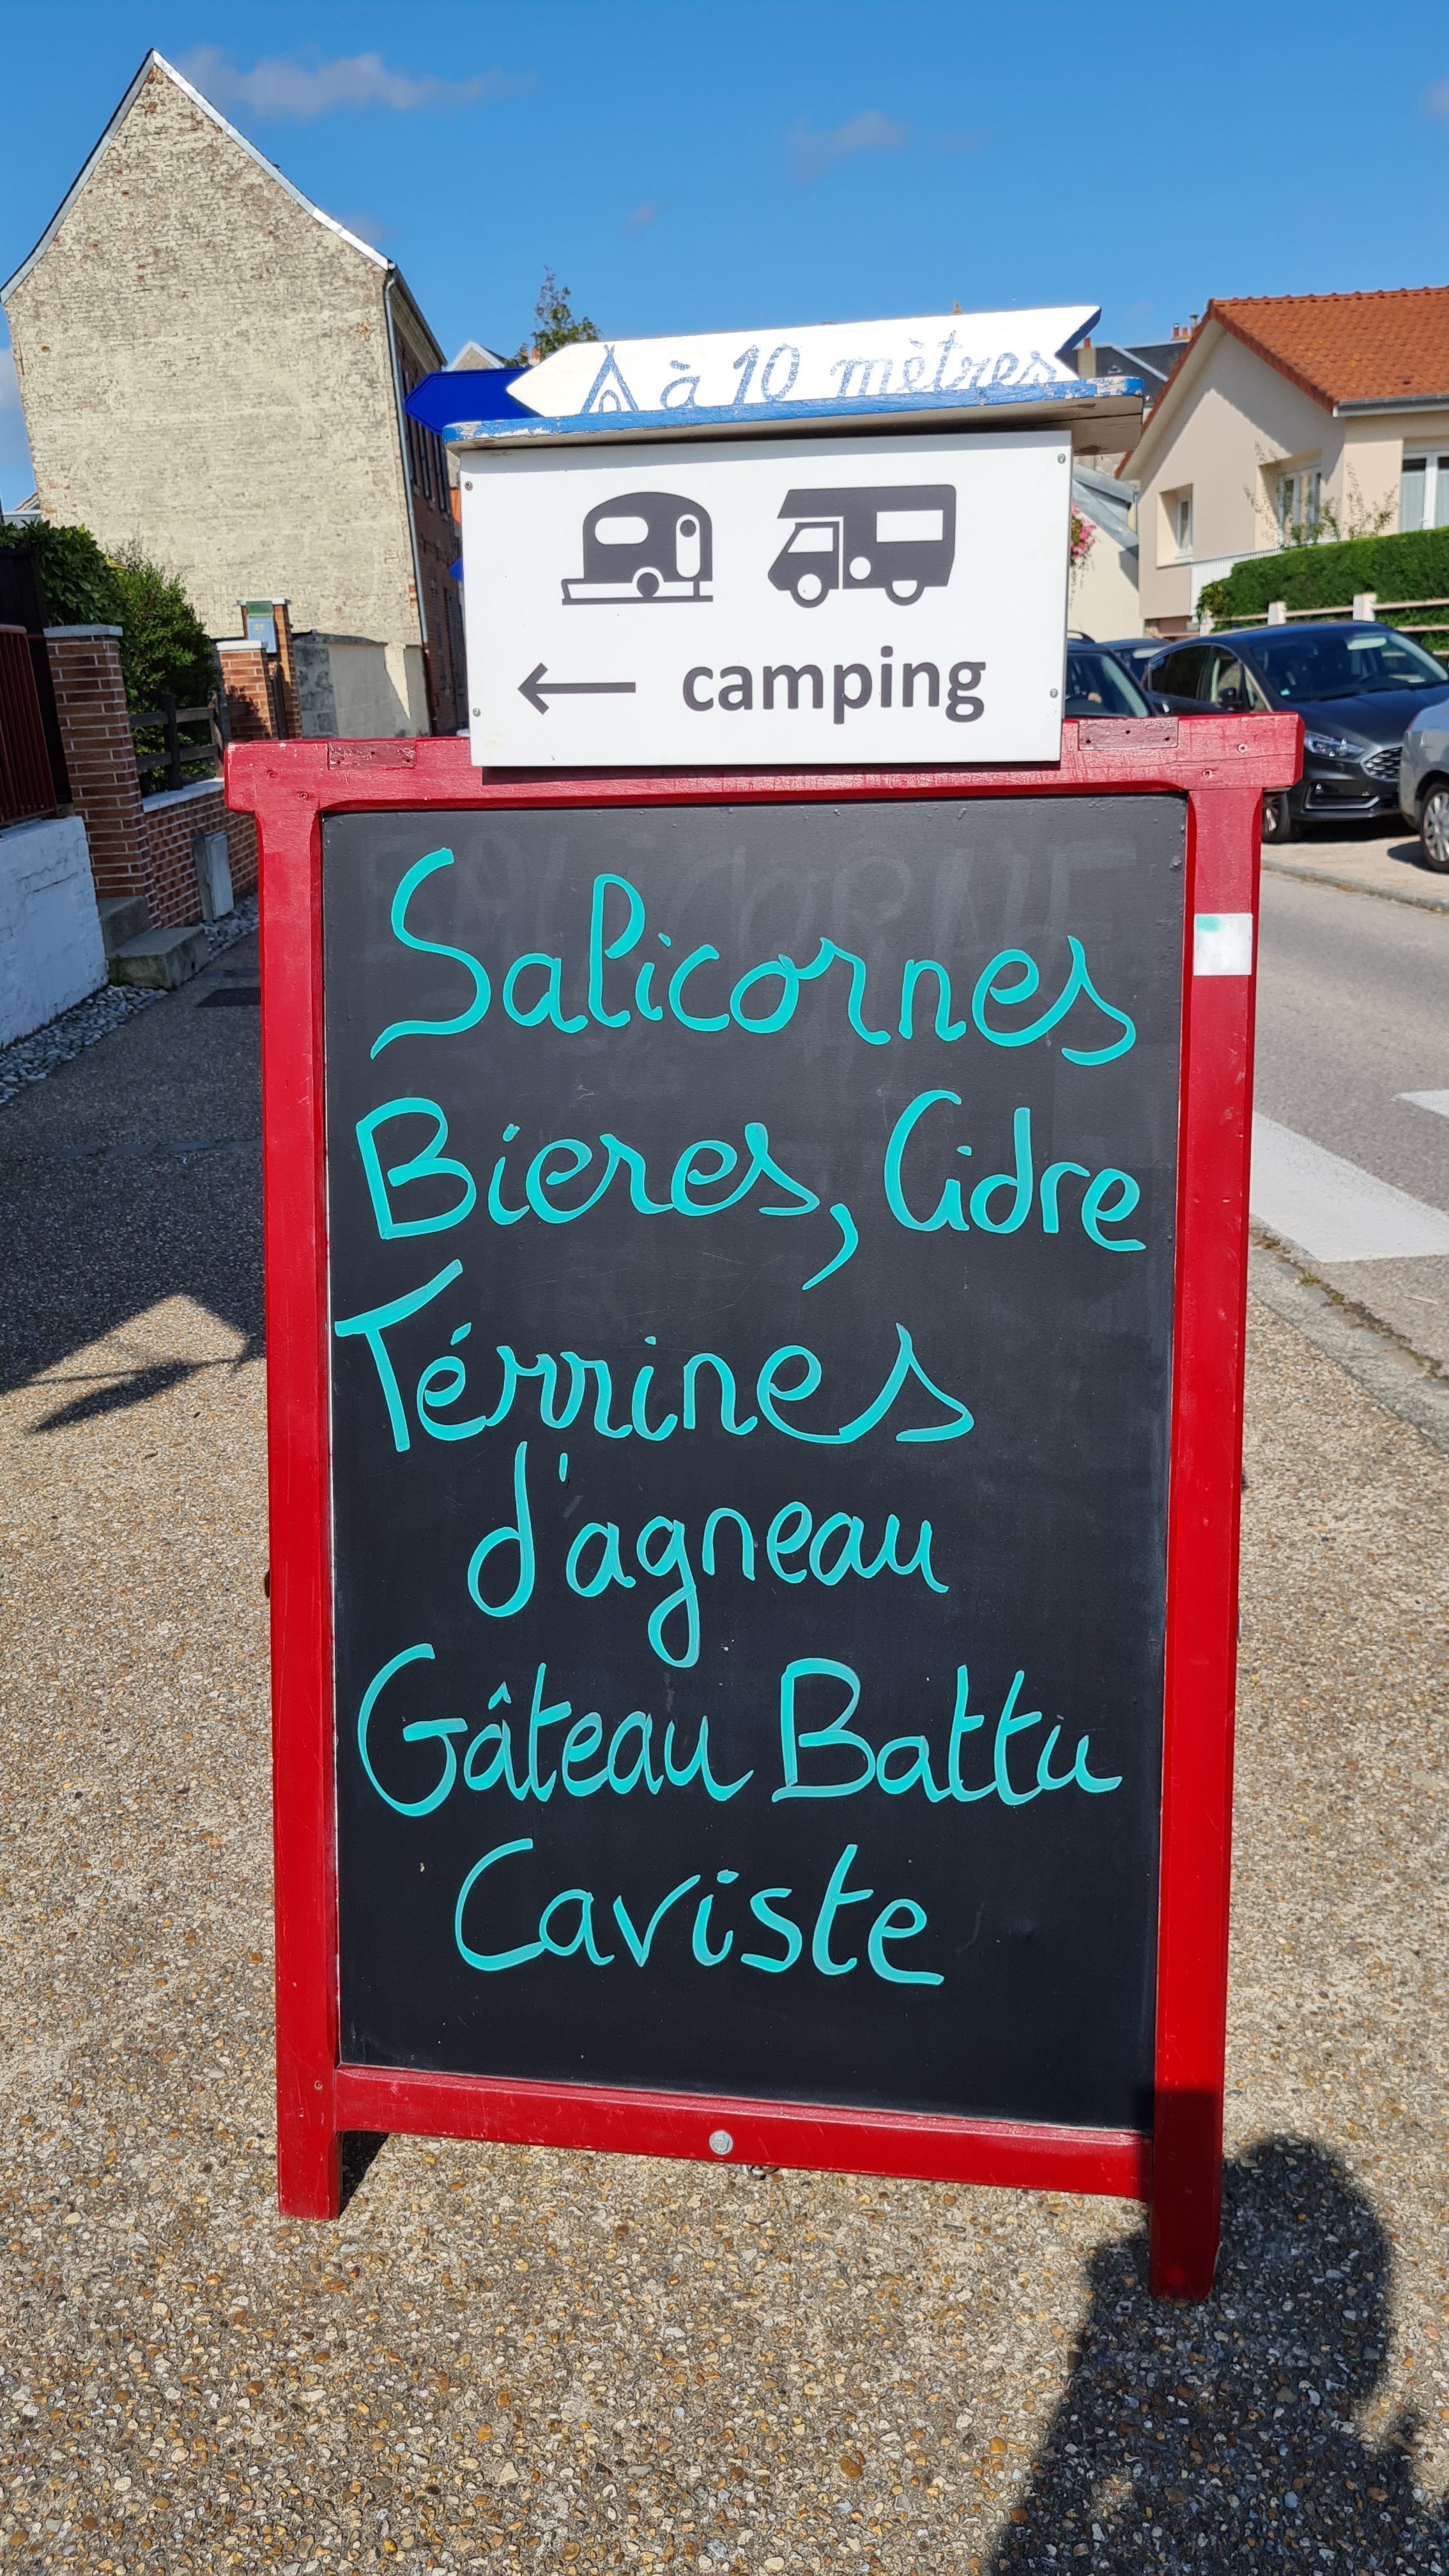 à 10 mètres
camping
SALICORNE
Salicornes
Bieres, Cidre
Térrines
d'agneau
Gâteau Battu
Caviste